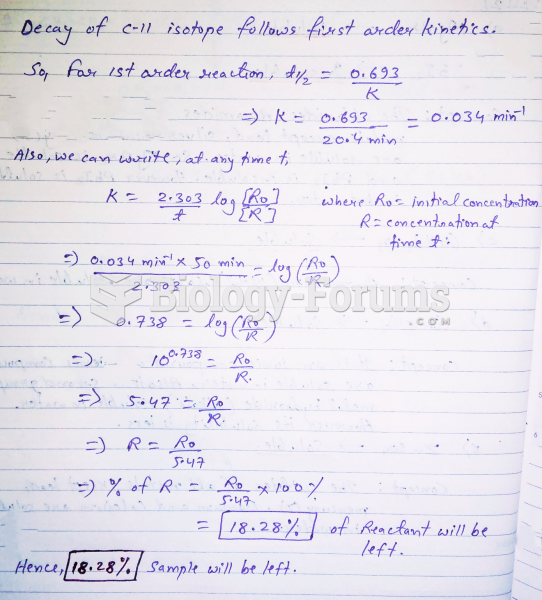 Decay of C-11 isotope follows first order kinetics.
So, for 1st order reaction, t1/2 = 0.693/K
=> K = 0.693/20.4 min = 0.034 min⁻¹
Also, we can write, at any time t,
K = 2.303/t log [Ro]/[R] where Ro = initial concentration
R = concentration at
time t.
=> 0.034 min⁻¹ × 50 min/2.303 = log (Ro/R)
Biology-Forums
.COM
=> 0.738 = log (Ro/R)
=> 10^0.738 = Ro/R.
=> 5.47 = Ro/R.
=> R = Ro/5.47
=> % of R = Ro/5.47 × 100%
= 18.28% of Reactant will be
left.
Hence, 18.28% Sample will be left.